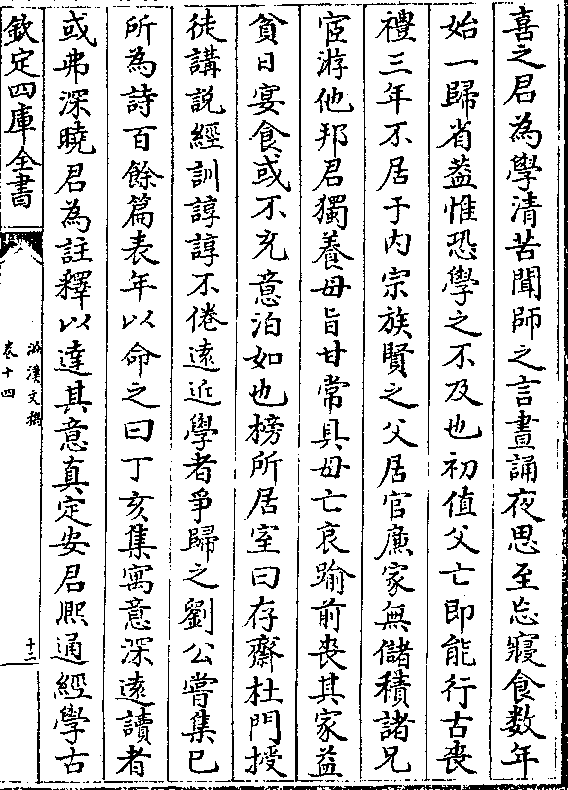 喜之君為學清苦聞師之言晝誦夜思至忘寢食数年
始一歸省葢惟恐學之不及也初值父亡即能行古喪
禮三年不居于内宗族賢之父居官廉家無儲積諸兄
宦游他邦君獨養母旨甘常具母亡哀踰前喪其家益
貧日宴食或不充意泊如也榜所居室曰存齋杜門授
徒講説經訓諄諄不倦逺近學者爭歸之劉公嘗集已
所為詩百餘篇表年以命之曰丁亥集寓意深逺讀者
或弗深曉君為註釋以達其意真定安君熈通經學古
欽定四庫全書
滋溪文稿
卷十四
十二